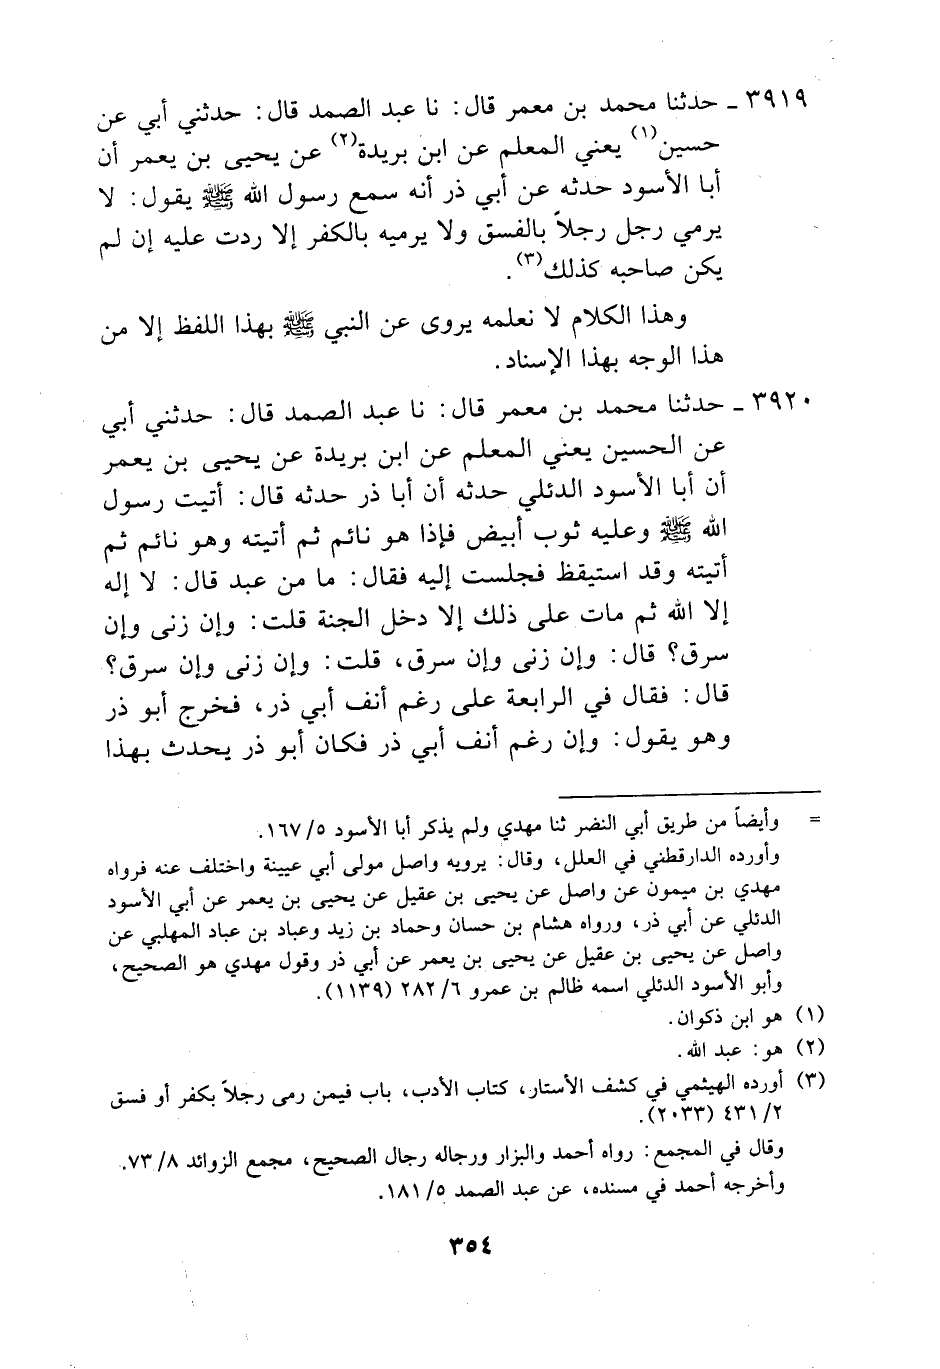 ٣٩١٩ ـ حدثنا محمد بن معمر قال: نا عبد الصمد قال: حدثني أبي عن
حسين(١) يعني المعلم عن ابن بريدة(٢) عن يحيى بن يعمر أن
أبا الأسود حدثه عن أبي ذر أنه سمع رسول الله ﷺ يقول: لا
يرمي رجل رجلاً بالفسق ولا يرميه بالكفر إلا ردت عليه إن لم
يكن صاحبه كذلك(٣).
وهذا الكلام لا نعلمه يروى عن النبي ﷺ بهذا اللفظ إلا من
هذا الوجه بهذا الإسناد.
٣٩٢٠ ـ حدثنا محمد بن معمر قال: نا عبد الصمد قال: حدثني أبي
عن الحسين يعني المعلم عن ابن بريدة عن يحيى بن يعمر
أن أبا الأسود الدئلي حدثه أن أبا ذر حدثه قال: أتيت رسول
الله ﷺ وعليه ثوب أبيض فإذا هو نائم ثم أتيته وهو نائم ثم
أتيته وقد استيقظ فجلست إليه فقال: ما من عبد قال: لا إله
إلا الله ثم مات على ذلك إلا دخل الجنة قلت: وإن زنى وإن
سرق؟ قال: وإن زنى وإن سرق، قلت: وإن زنى وإن سرق؟
قال: فقال في الرابعة على رغم أنف أبي ذر، فخرج أبو ذر
وهو يقول: وإن رغم أنف أبي ذر فكان أبو ذر يحدث بهذا
= وأيضاً من طريق أبي النضر ثنا مهدي ولم يذكر أبا الأسود ١٦٧/٥.
وأورده الدارقطني في العلل، وقال: يرويه واصل مولى أبي عيينة واختلف عنه فرواه
مهدي بن ميمون عن واصل عن يحيى بن عقيل عن يحيى بن يعمر عن أبي الأسود
الدئلي عن أبي ذر، ورواه هشام بن حسان وحماد بن زيد وعباد بن عباد المهلبي عن
واصل عن يحيى بن عقيل عن يحيى بن يعمر عن أبي ذر وقول مهدي هو الصحيح،
وأبو الأسود الدئلي اسمه ظالم بن عمرو ٦/ ٢٨٢ (١١٣٩).
(١) هو ابن ذكوان.
(٢) هو: عبد الله.
(٣) أورده الهيثمي في كشف الأستار، كتاب الأدب، باب فيمن رمى رجلاً بكفر أو فسق
٢/ ٤٣١ (٢٠٣٣).
وقال في المجمع: رواه أحمد والبزار ورجاله رجال الصحيح، مجمع الزوائد ٨/ ٧٣.
وأخرجه أحمد في مسنده، عن عبد الصمد ٥/ ١٨١.
٣٥٤